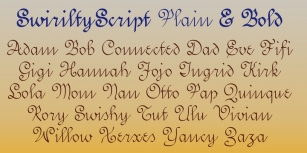 SwiriltyScript Plain & Bold
Adam Bob Connected Dad Eve Fifi
Gigi Hannah Jojo Ingrid Kirk
Lola Mom Nan Otto Pap Quinque
Rory Swishy Tut Ulu Vivian
Willow Xerxes Yancy Zaza